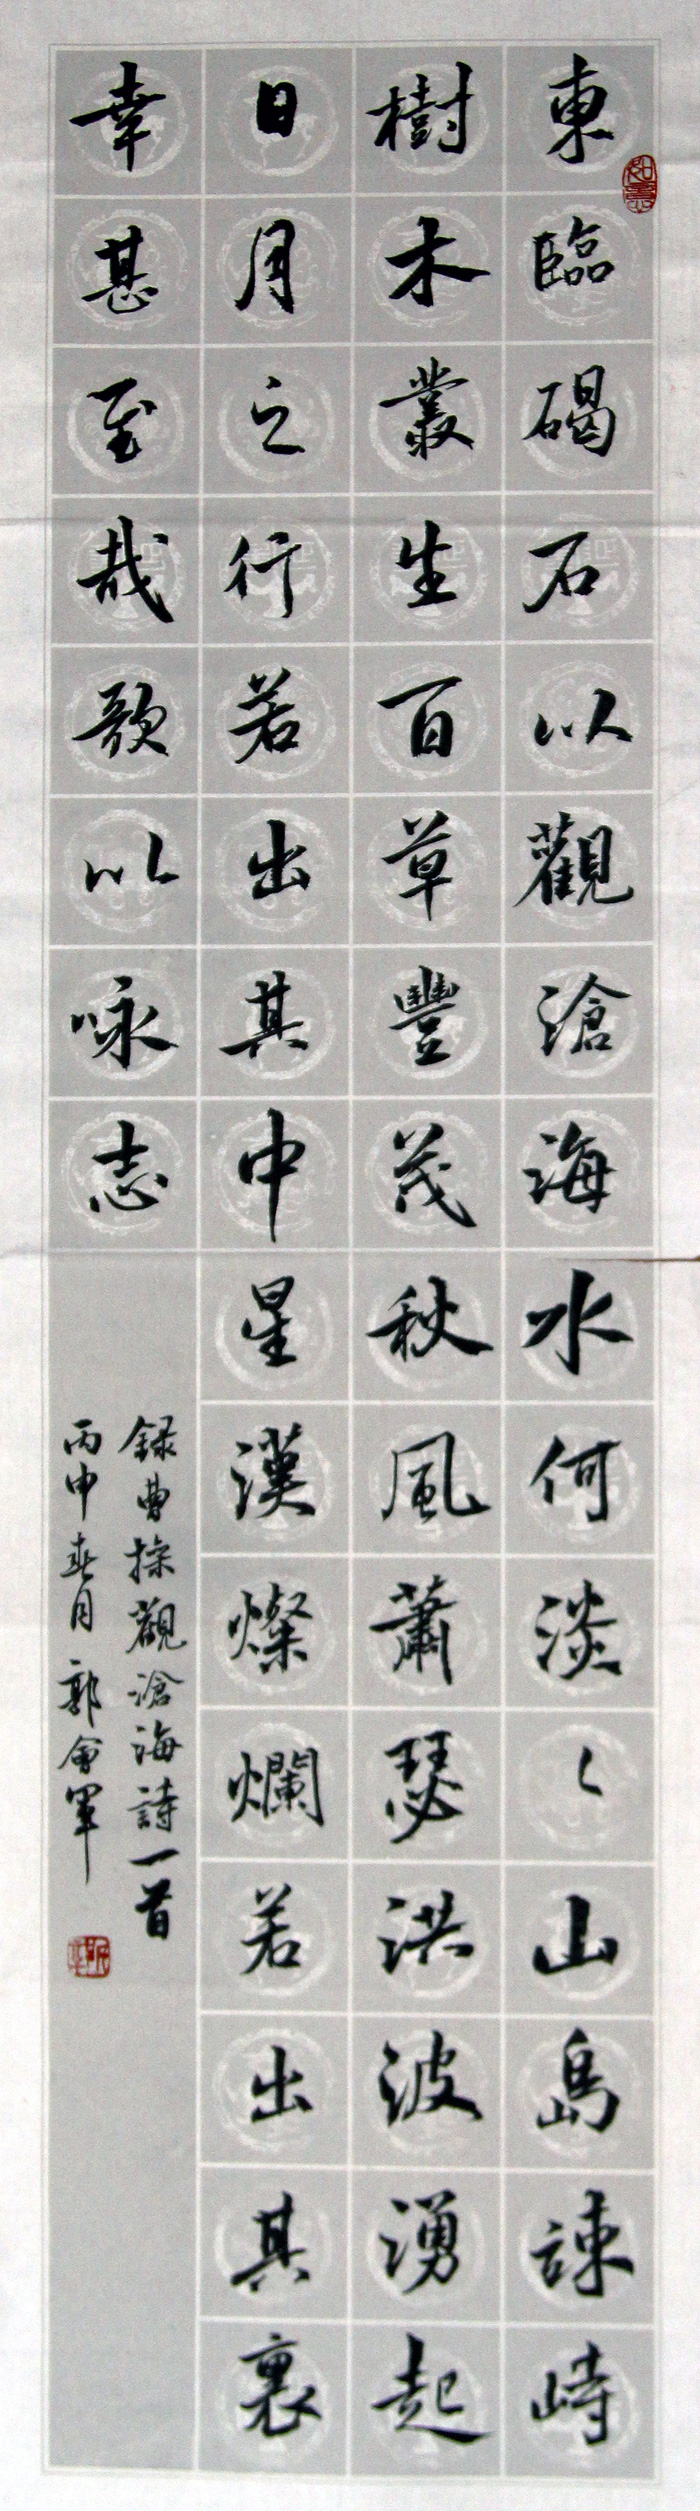 東臨碣石以觀滄海水何淡〻山島諫峙
樹木叢生百草豐茂秋風蕭瑟洪波湧起
日月之行若出其中星漢燦爛若出其裏
幸甚至哉歌以咏志
録曹操觀滄海詩一首
丙申春月郭會軍
如意